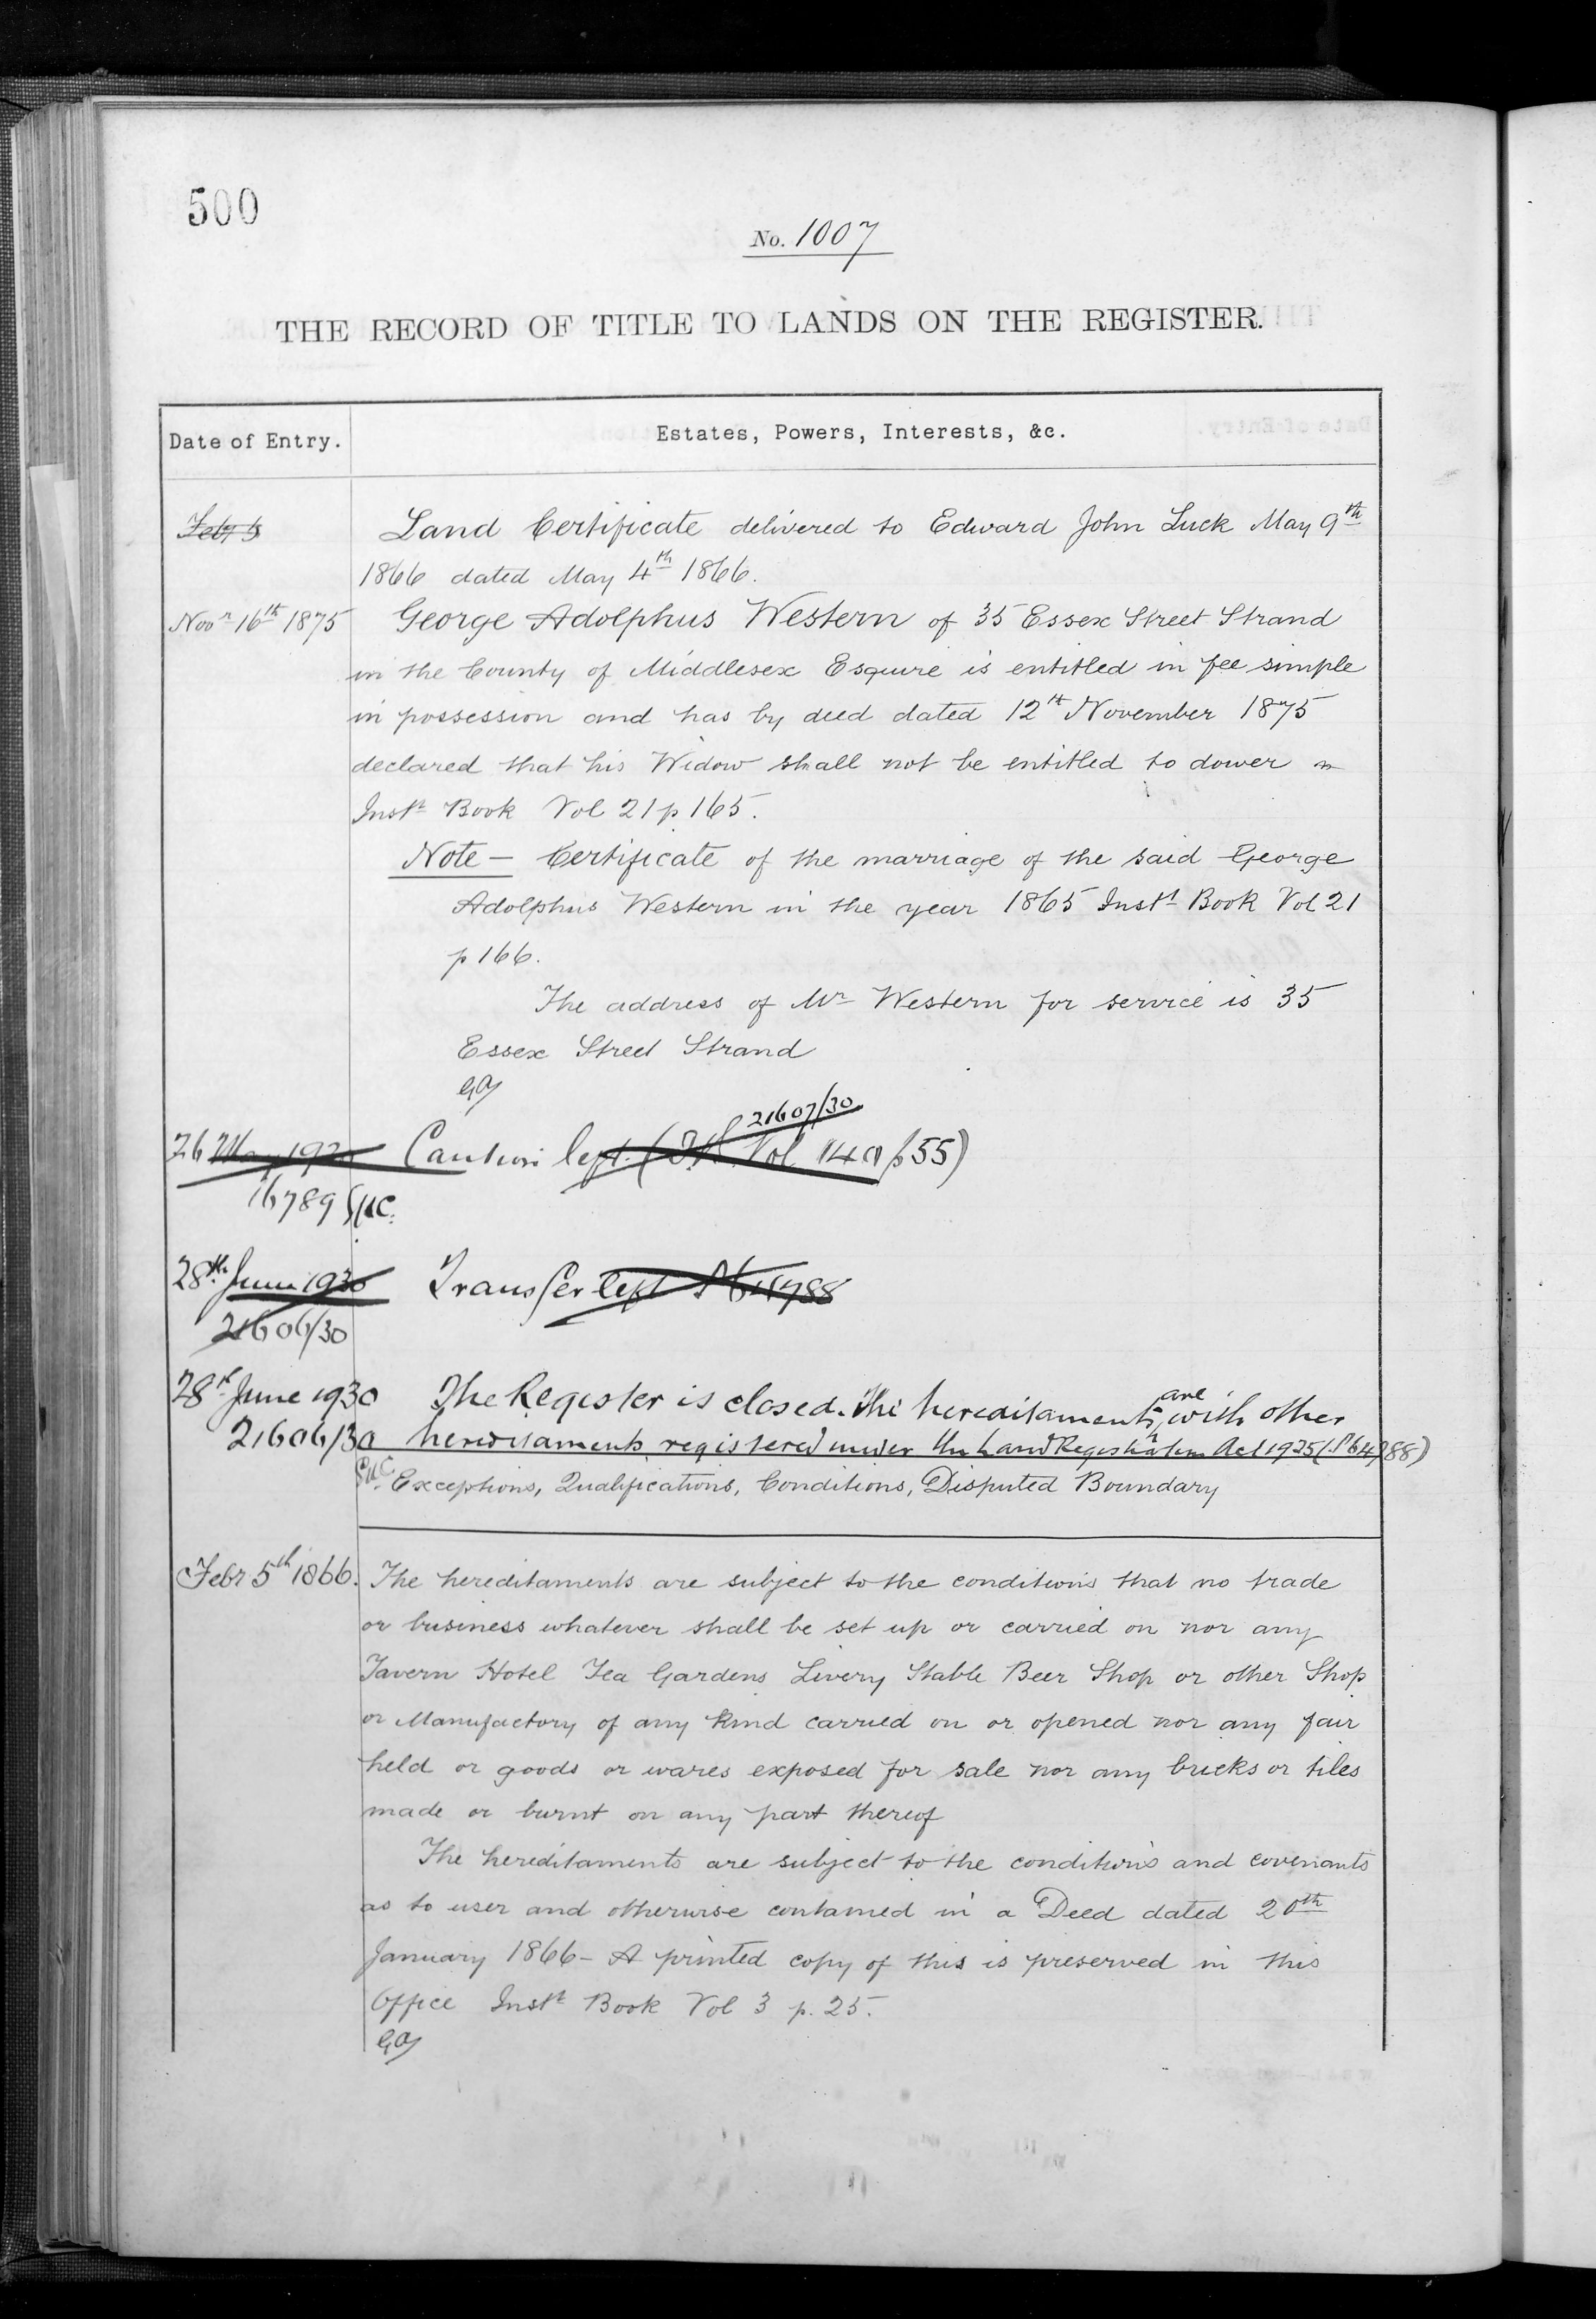 500
No. 1007
THE RECORD OF TITLE TO LANDS ON THE REGISTER.
Date of Entry.
Estates, Powers, Interests, &c.
Feby 5
Land Certificate delivered to Edward John Luck May 9th
1866 dated May 4th 1866.
Novr 16th 1875
George Adolphus Western of 35 Essex Street Strand
in the County of Middlesex Esquire is entitled in fee simple
in possession and has by deed dated 12th November 1875
declared that his Widow shall not be entitled to dower
Instt Book Vol 21 p 165.
Note – Certificate of the marriage of the said George
Adolphus Western in the year 1865 Instt Book Vol 21
p 166.
The address of Mr Western for service is 35
Essex Street Strand
21607/30
26 May 1930 Caution left. Vol 140 p 55)
16789
28th June 1930 Transfer left P64788
21606/30
28th June 1930 The Register is closed. The hereditaments are with other
21606/30 hereditaments registered under the Land Registration Act 1925 (P64788)
Exceptions, Qualifications, Conditions, Disputed Boundary
Feby 5th 1866. The hereditaments are subject to the conditions that no trade
or business whatever shall be set up or carried on nor any
Tavern Hotel Tea Gardens Livery Stable Beer Shop or other Shop
or Manufactory of any kind carried on or opened nor any fair
held or goods or wares exposed for sale nor any bricks or tiles
made or burnt on any part thereof
The hereditaments are subject to the conditions and covenants
as to user and otherwise contained in a Deed dated 20th
January 1866 – A printed copy of this is preserved in this
Office Instt Book Vol 3 p. 25.